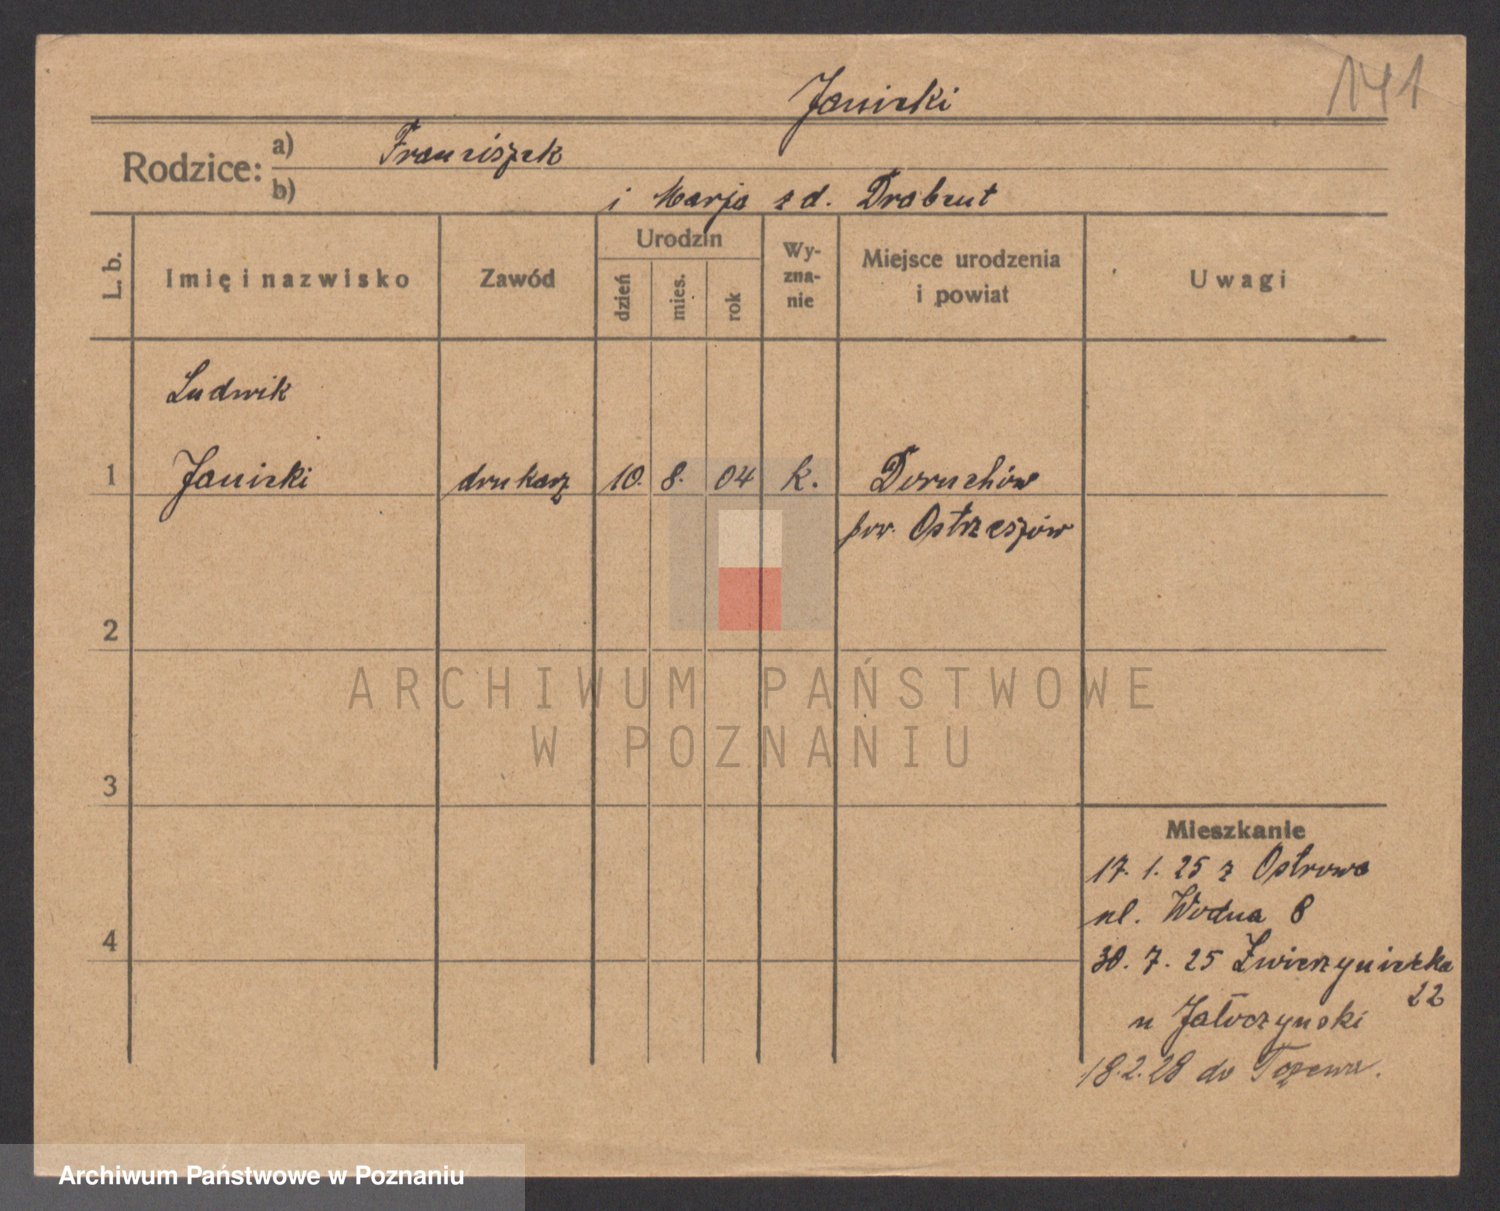 141
Janicki
Rodzice: a) Franciszek
b) i Marja z d. Drabent
L. b.
Imię i nazwisko
Zawód
Urodzin
dzień
mies.
rok
Wy-
zna-
nie
Miejsce urodzenia
i powiat
Uwagi
Ludwik
1 Janicki drukarz 10. 8. 04 k. Doruchów
pow. Ostrzeszów
2
3
4
Mieszkanie
17. 1. 25 z Ostrowa
ul. Wodna 8
30. 7. 25 Zwierzyniecka
22
u Jałoczynski
18.2.28 do
ARCHIWUM PAŃSTWOWE
W POZNANIU
Archiwum Państwowe w Poznaniu